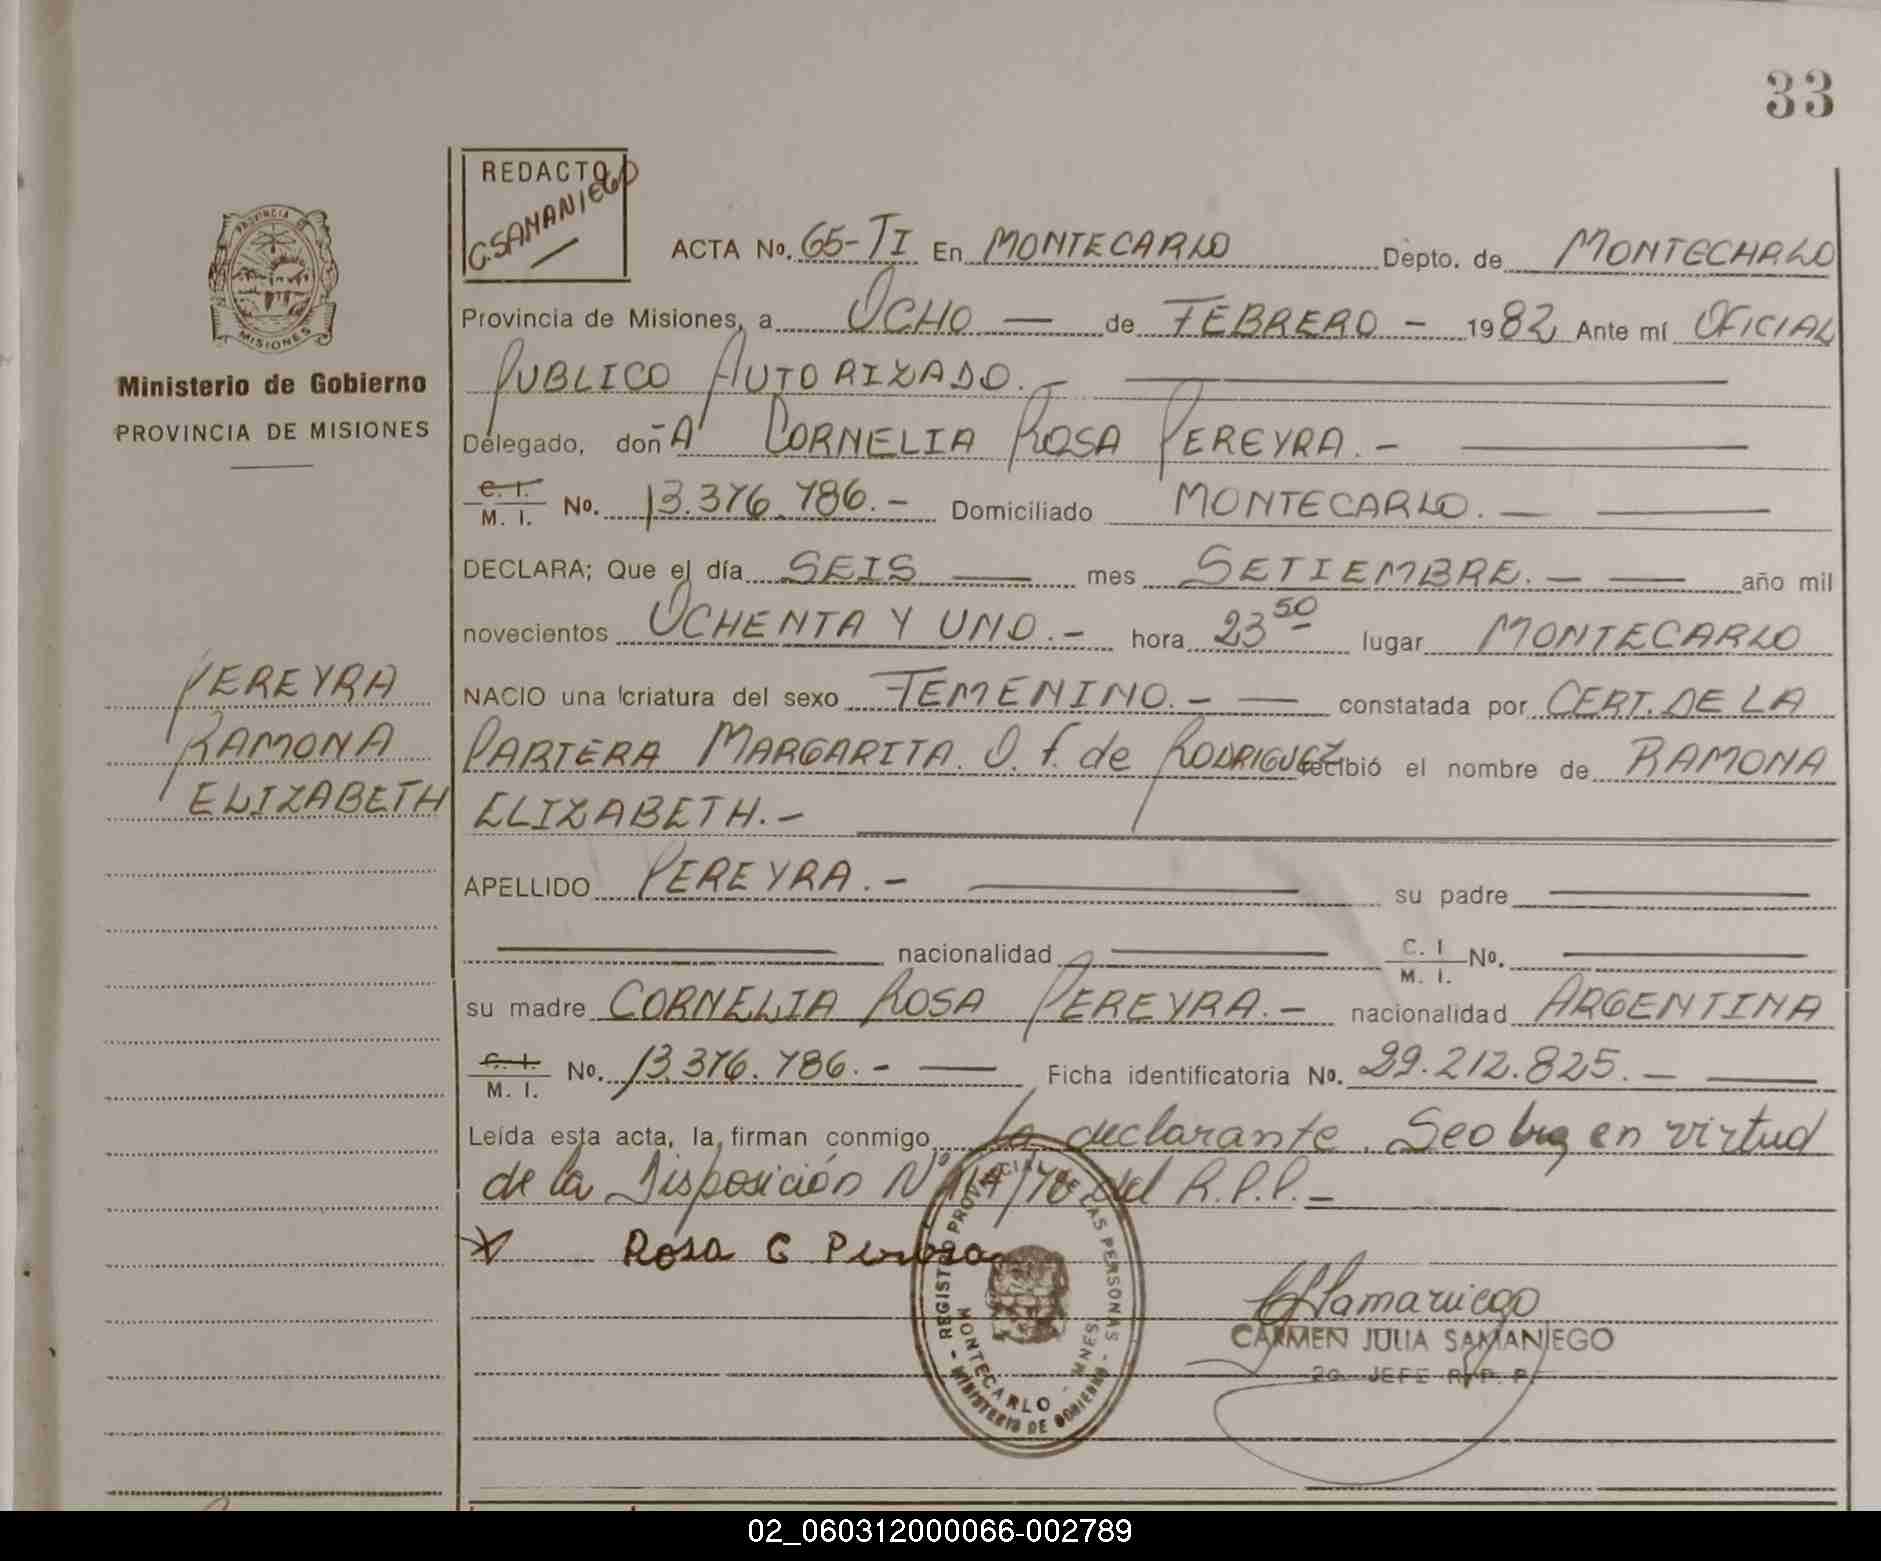 33
REDACTO
C. SAMANIEGO
PROVINCIA DE
MISIONES
Ministerio de Gobierno
PROVINCIA DE MISIONES
PEREYRA
RAMONA
ELIZABETH
ACTA No. 65-TI En MONTECARLO Depto. de MONTECARLO
Provincia de Misiones, a OCHO — de FEBRERO - 1982 Ante mí OFICIAL
PUBLICO AUTORIZADO. -
Delegado, doñA CORNELIA ROSA PEREYRA. -
C. I. M. I. No. 13.376.786. - Domiciliado MONTECARLO. —
DECLARA; Que el día SEIS — mes SETIEMBRE. — año mil
novecientos OCHENTA Y UNO. - hora 23 50 lugar MONTECARLO
NACIO una criatura del sexo FEMENINO. - — constatada por CERT. DE LA
PARTERA MARGARITA. O. f. de RODRIGUEZ recibió el nombre de RAMONA
ELIZABETH. -
APELLIDO PEREYRA. - su padre
nacionalidad C. I M. I. No.
su madre CORNELIA ROSA PEREYRA. - nacionalidad ARGENTINA
C. I. M. I. No. 13.376.786. - — Ficha identificatoria No. 29.212.825. —
Leída esta acta, la firman conmigo la declarante. Se en virtud
de la Disposición Nº del R.P.P. -
Rosa C
REGISTRO PROVINCIAL DE LAS PERSONAS - MINISTERIO DE GOBIERNO -
MONTECARLO - MNES.
CSamaniego
CARMEN JULIA SAMANIEGO
2o. JEFE R. P. P.
02_060312000066-002789